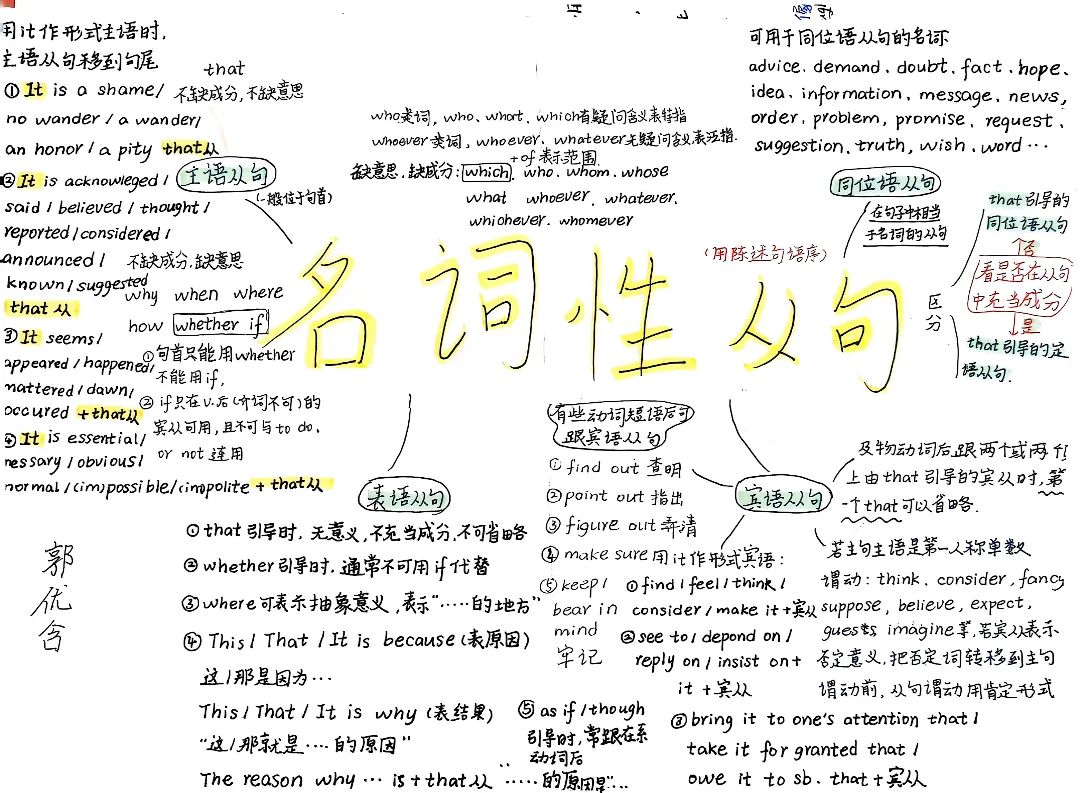 用it作形式主语时,
主语从句移到句尾
① It is a shame/
no wander / a wander/
an honor / a pity that从
② It is acknowleged /
said / believed / thought /
reported / considered /
announced /
known / suggested
that 从
③ It seems/
appeared / happened/
mattered / dawn/
occured + that从
④ It is essential/
nessary / obvious/
normal / (im)possible/(im)polite + that从
that
不缺成分,不缺意思
主语从句
(一般位于句首)
不缺成分,缺意思
why when where
how whether if
① 句首只能用whether
不能用if,
② if只在v.后(介词不可)的
宾从可用,且不可与to do.
or not 连用
who类词, who、what、which有疑问含义表特指
whoever类词, whoever、whatever无疑问含义表泛指.
+ of 表示范围
缺意思,缺成分: which、who、whom、whose
what whoever、whatever、
whichever、whomever
名词性从句
(用陈述句语序)
可用于同位语从句的名词
advice、demand、doubt、fact、hope、
idea、information、message、news,
order、problem、promise、request、
suggestion、truth、wish、word…
同位语从句
在句子中相当
于名词的从句
区分
that引导的
同位语从句
否
看是否在从句
中充当成分
是
that引导的定
语从句.
表语从句
① that引导时,无意义,不充当成分,不可省略
② whether引导时,通常不可用if代替
③ where可表示抽象意义,表示"……的地方"
④ This / That / It is because (表原因)
这/那是因为…
This / That / It is why (表结果)
"这/那就是…的原因"
The reason why … is + that从 ……的原因是"…
⑤ as if / though
引导时,常跟在系
动词后
宾语从句
有些动词短语后可
跟宾语从句
① find out 查明
② point out 指出
③ figure out 弄清
④ make sure
⑤ keep /
bear in
mind
牢记
用it作形式宾语:
① find / feel / think /
consider / make it + 宾从
② see to / depond on /
reply on / insist on +
it + 宾从
③ bring it to one's attention that /
take it for granted that /
owe it to sb. that + 宾从
及物动词后跟两个或两个
上由that引导的宾从时,第
一个that可以省略.
若主句主语是第一人称单数
谓动: think、consider, fancy
suppose, believe, expect,
guess, imagine等,若宾从表示
否定意义,把否定词转移到主句
谓动前,从句谓动用肯定形式
郭优含